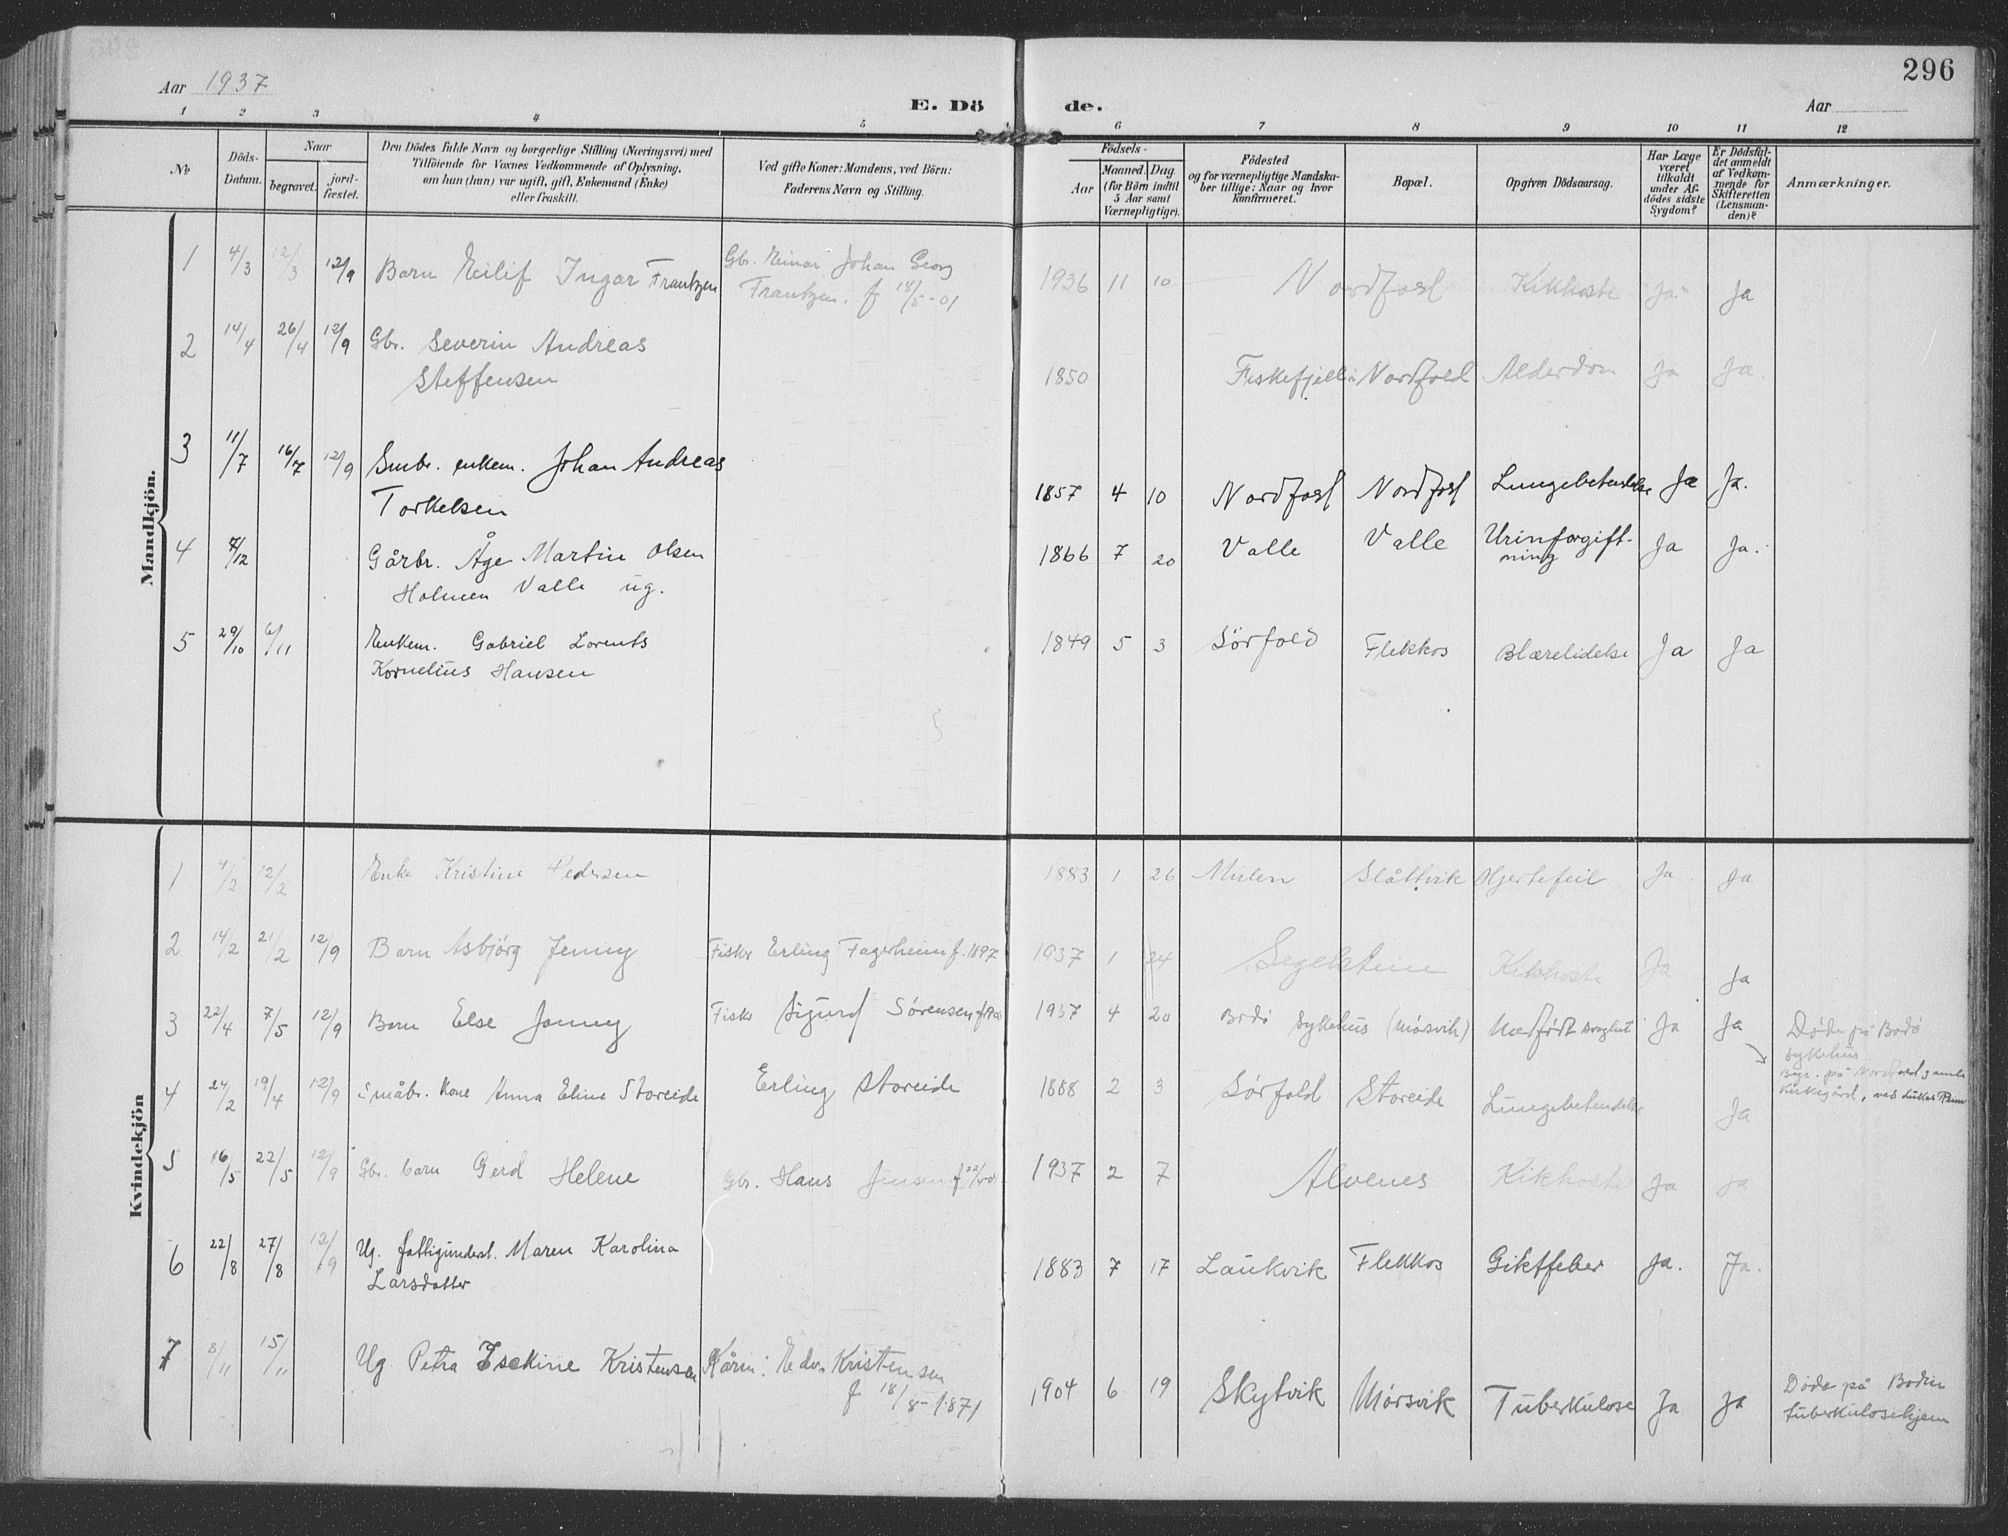 296
Aar 1937
E. Döde.
Aar
1 2 3 4 5 6 7 8 9 10 11 12
No
Döds-Datum.
Naar
begravet.
jord-fæstet.
Den Dödes fulde Navn og borgerlige Stilling (Næringsvei) med
Tilföiende for Voxnes Vedkommende af Oplysning,
om han (hun) var ugift, gift, Enkemand (Enke)
eller fraskilt.
Ved gifte Koner: Mandens, ved Börn:
Faderens Navn og Stilling.
Födsels-
Aar
Maaned. Dag.
(for Börn indtil
5 Aar samt
Værnepligtige).
Födested
og for værnepligtige Mandska-
ber tillige: Naar og hvor
konfirmeret.
Bopæl.
Opgiven Dödsaarsag.
Har Læge
været
tilkaldt
under Af-
dödes sidste
Sygdom?
Er Dödsfal-
det anmeldt
af Vedkom-
mende for
Skifteretten
(Lensman-
den)?
Anmærkninger.
Mandkjön.
1 4/3 12/3 12/9 Barn Eilif Ingar Frantzen Gbr. Einar Johan Georg 1936 11 10 Nordfold Kikhoste Ja Ja
Frantzen. f 18/5-01
2 14/4 26/4 12/9 Gbr. Severin Andreas
Steffensen 1850 Fiskefjell Nordfold Alderdom Ja Ja
3 11/7 16/7 12/9 Smbr. enkem. Johan Andreas
Torkelsen 1857 4 10 Nordfold Nordfold Lungebetendelse Ja Ja.
4 Gårbr. Åge Martin Olsen 1866 7 20 Valle Valle Urinforgift- Ja Ja.
Holmen Valle ug. ning
5 29/10 6/11 Enkem. Gabriel Lorents 1849 5 3 Sörfold Flekkos Blærelidelse Ja Ja
Kornelius Hansen
Kvindekjön
1 4/2 12/2 Enke Kristine Pedersen 1883 1 26 Mulen Slåttvik Hjertefeil Ja Ja
2 14/2 21/2 12/9 Barn Asbjörg Jenny Fisker Erling Fagerheim f. 1897 1937 1 24 Segelsteine Kikhoste Ja Ja
3 22/4 7/5 12/9 Barn Else Jonny Fisker Sigurd Sörensen 1937 4 20 Bodö Sykehus (Mörsvik) Medfödt svaghet Ja Ja Döde på Bodö
sykehus
Begr. på Nordfold gamle
kirkegård, ved
4 24/2 19/4 12/9 Småbr. kone Anna Eline Storeide Erling Storeide 1888 2 3 Sörfold Storeide Lungebetendelse Ja
5 16/5 22/5 12/9 Gbr. barn Gerd Helene Gbr. Hans Jensen 1937 2 7 Alvenes Kikhoste Ja Ja
6 22/8 27/8 12/9 Ug. fattigunderst. Maren Karolina 1883 7 17 Laukvik Flekkos Giktfeber Ja. Ja.
Larsdatter
7 8/11 15/11 Ug. Petra Kristensen Edv. Kristensen 1904 6 19 Skytvik Mörsvik Tuberkulose Ja Ja Döde på Bodin
f 18/8-1871 tuberkulosehjem